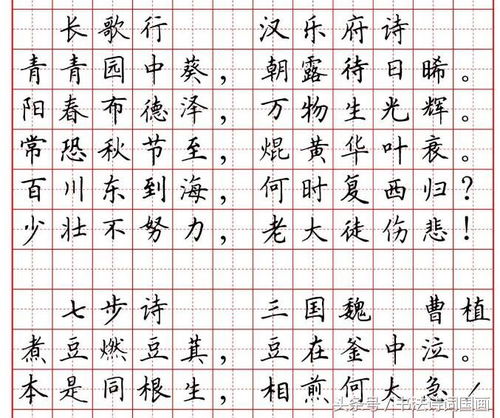 长歌行 汉乐府诗
青青园中葵，朝露待日晞。
阳春布德泽，万物生光辉。
常恐秋节至，焜黄华叶衰。
百川东到海，何时复西归？
少壮不努力，老大徒伤悲！
七步诗 三国魏 曹植
煮豆燃豆萁，豆在釜中泣。
本是同根生，相煎何太急！
头条号/书法诗词国画